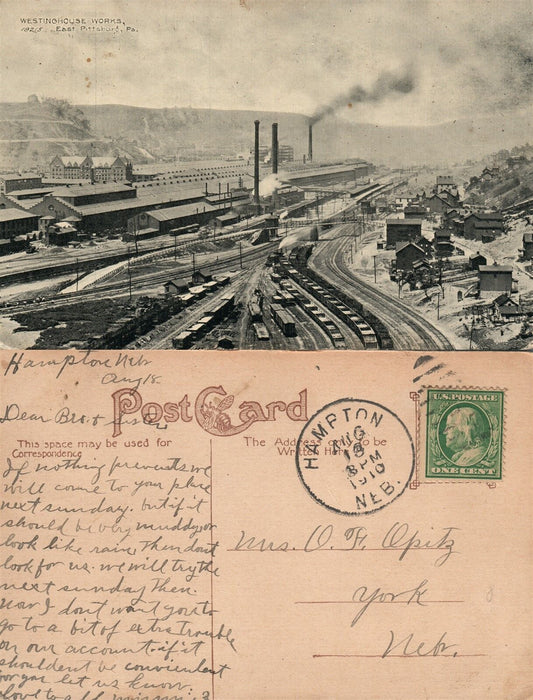 WESTINGHOUSE WORKS,
East Pittsburg, Pa.
Hampton Neb
Aug 18.
Post Card
Dear Bro. &
This space may be used for
Correspondence
The Address only to be
Written Here
HAMPTON
AUG
18
8 PM
1910
NEB.
U.S. POSTAGE
ONE CENT
If nothing prevents we
will come to your place
next sunday. but if it
should be very muddy or
look like rain, then dont
look for us. we will try the
next sunday then.
Now I dont want you to
go to a bit of extra trouble
on our account if it
shouldent be convienient
for you let us know.
love to all
Mrs. O. F. Opitz
York
Nebr.